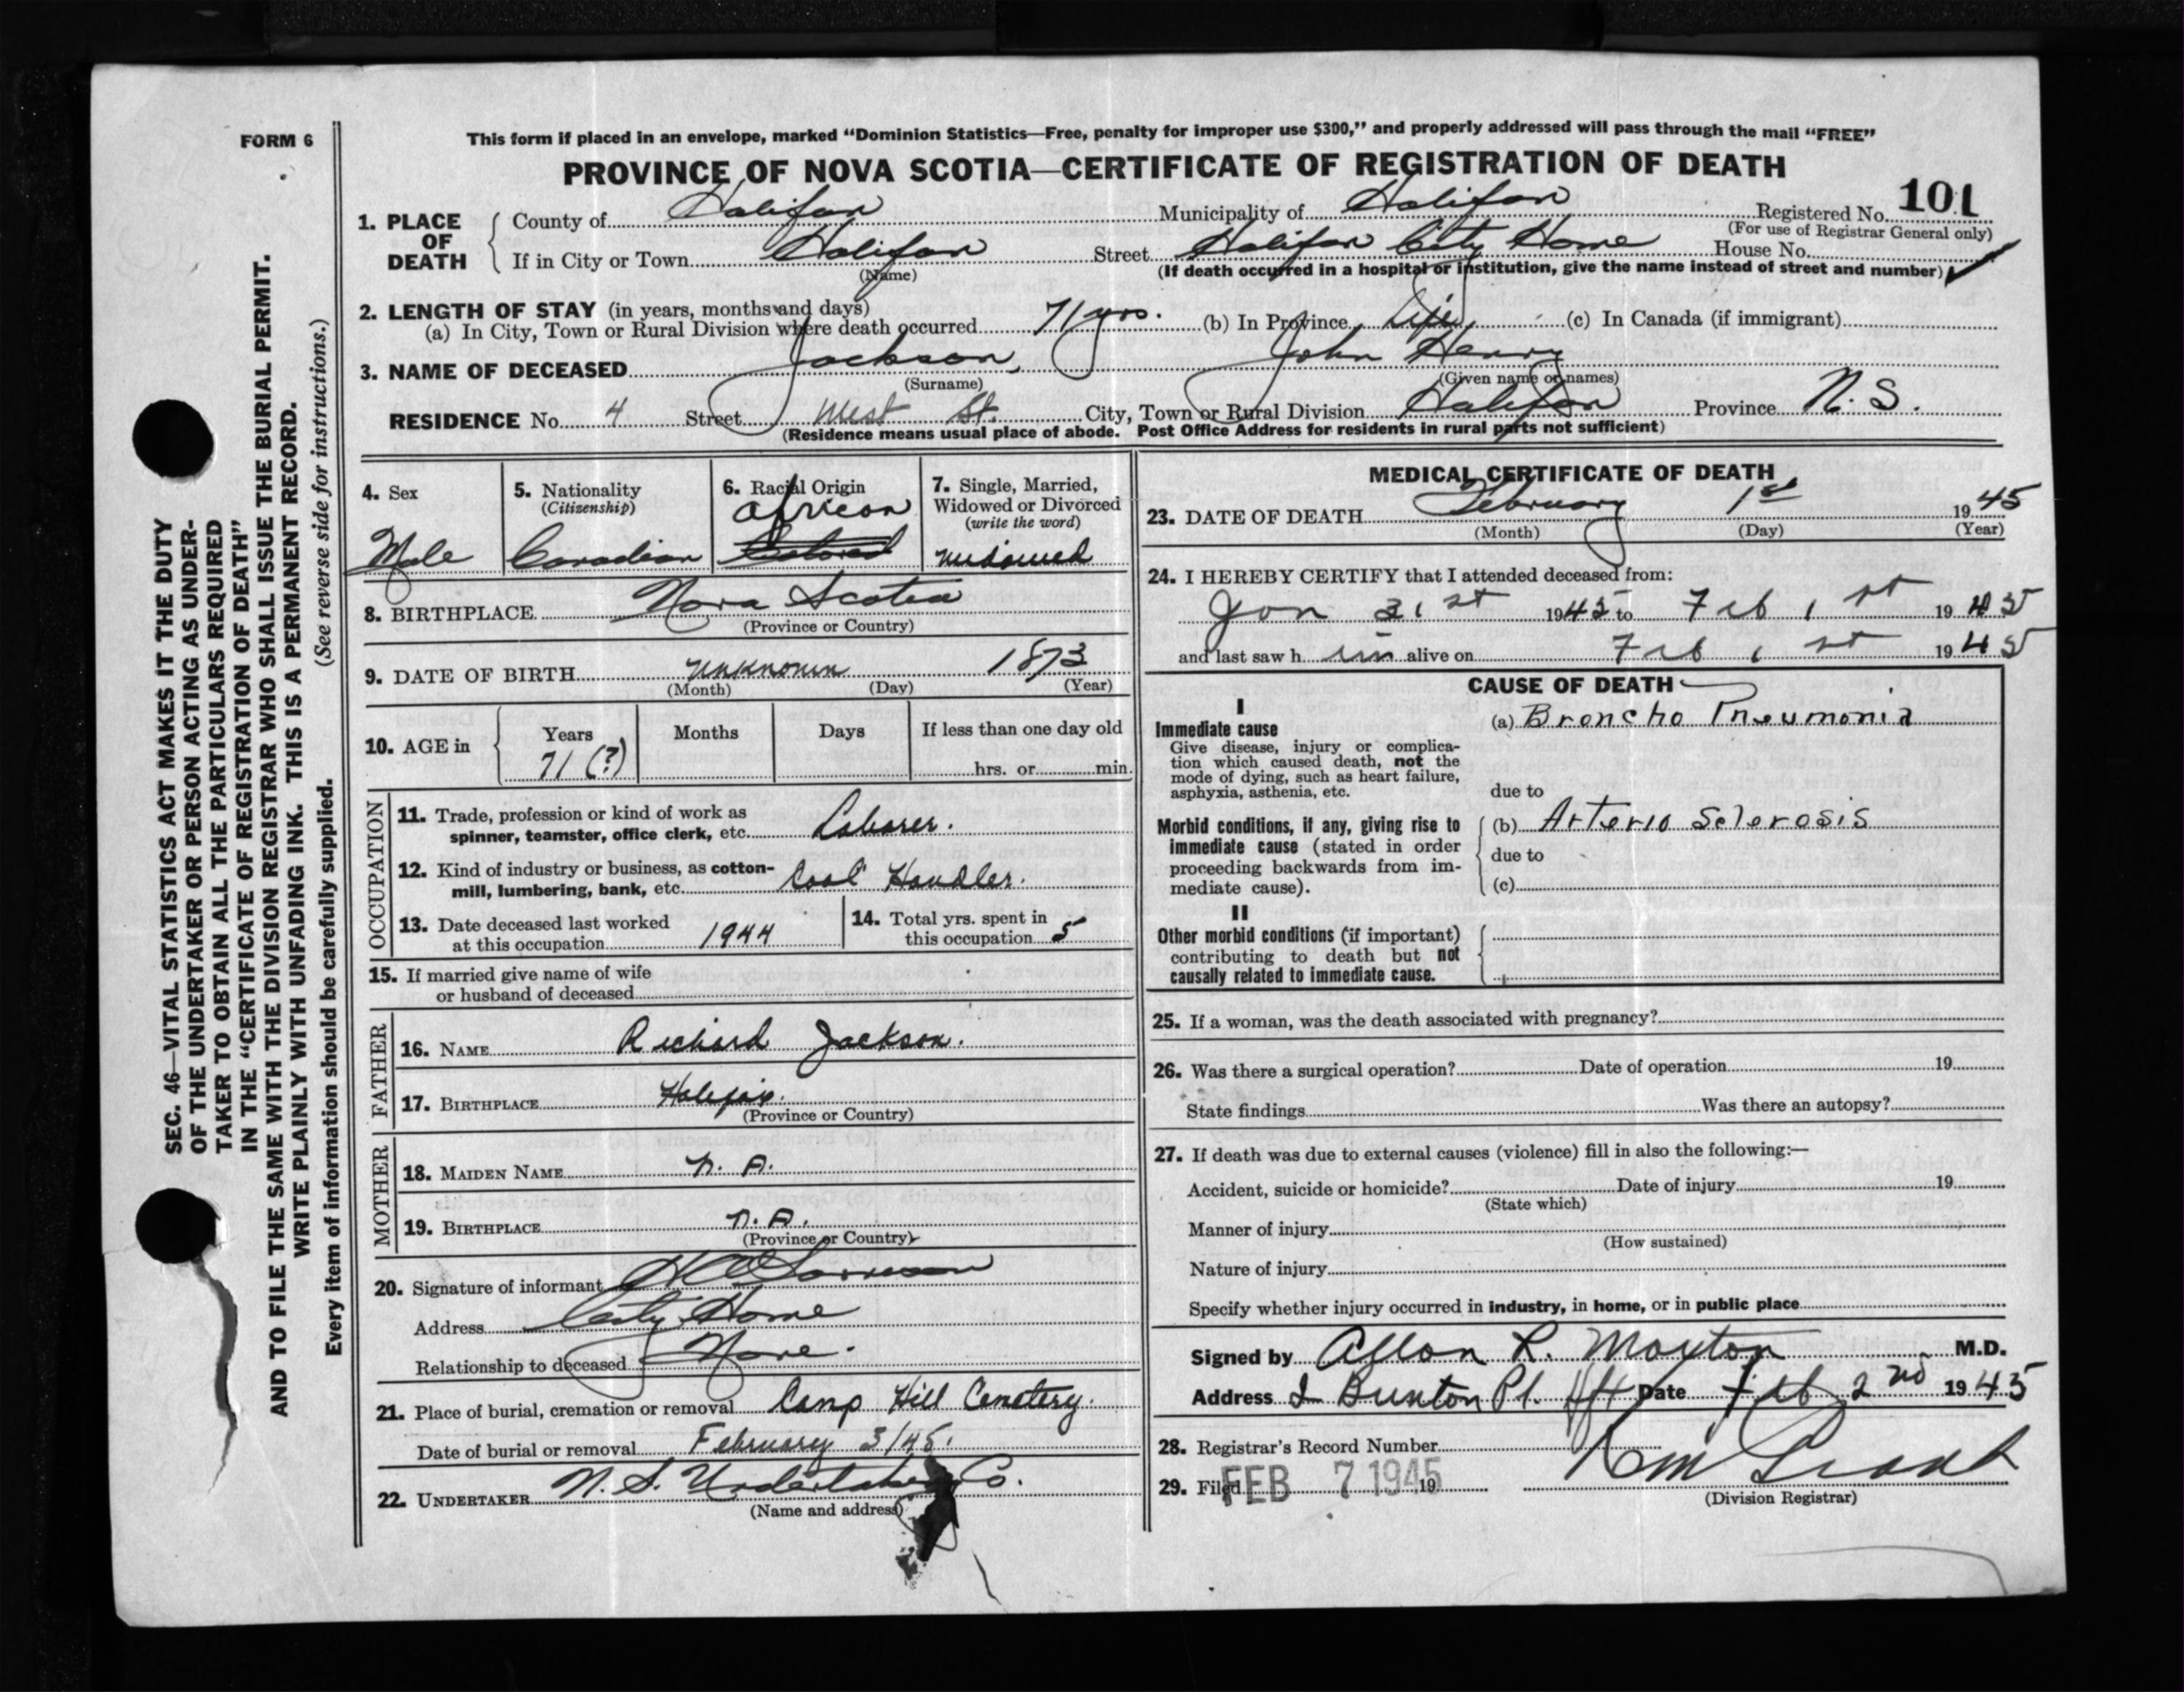 FORM 6
This form if placed in an envelope, marked “Dominion Statistics—Free, penalty for improper use $300,” and properly addressed will pass through the mail “FREE”
PROVINCE OF NOVA SCOTIA—CERTIFICATE OF REGISTRATION OF DEATH
1. PLACE OF DEATH
County of Halifax Municipality of Halifax Registered No. 101
(For use of Registrar General only)
If in City or Town Halifax Street Halifax City Home House No.
(Name) (If death occurred in a hospital or institution, give the name instead of street and number)
2. LENGTH OF STAY (in years, months and days)
(a) In City, Town or Rural Division where death occurred 71 yrs. (b) In Province Life (c) In Canada (if immigrant)
3. NAME OF DECEASED Jackson, John Henry
(Surname) (Given name or names)
RESIDENCE No. 4 Street West St. City, Town or Rural Division Halifax Province N.S.
(Residence means usual place of abode. Post Office Address for residents in rural parts not sufficient)
4. Sex
Male
5. Nationality
(Citizenship)
Canadian
6. Racial Origin
African
Colored
7. Single, Married,
Widowed or Divorced
(write the word)
Widowed
8. BIRTHPLACE Nova Scotia
(Province or Country)
9. DATE OF BIRTH unknown 1873
(Month) (Day) (Year)
10. AGE in
Years Months Days If less than one day old
71 (?) hrs. or min.
OCCUPATION
11. Trade, profession or kind of work as
spinner, teamster, office clerk, etc. Laborer.
12. Kind of industry or business, as cotton-
mill, lumbering, bank, etc. Coal Handler.
13. Date deceased last worked
at this occupation 1944
14. Total yrs. spent in
this occupation 5
15. If married give name of wife
or husband of deceased
FATHER
16. NAME Richard Jackson.
17. BIRTHPLACE Halifax.
(Province or Country)
MOTHER
18. MAIDEN NAME N. A.
19. BIRTHPLACE N. A.
(Province or Country)
20. Signature of informant
Address City Home
Relationship to deceased None.
21. Place of burial, cremation or removal Camp Hill Cemetery.
Date of burial or removal February 3/45.
22. UNDERTAKER N. S. Undertaking Co.
(Name and address)
MEDICAL CERTIFICATE OF DEATH
23. DATE OF DEATH February 1st 1945
(Month) (Day) (Year)
24. I HEREBY CERTIFY that I attended deceased from:
Jan 31st 1945 to Feb 1st 1945
and last saw him alive on Feb 1st 1945
CAUSE OF DEATH
I
Immediate cause
Give disease, injury or complica-
tion which caused death, not the
mode of dying, such as heart failure,
asphyxia, asthenia, etc.
(a) Broncho Pneumonia
due to
Morbid conditions, if any, giving rise to
immediate cause (stated in order
proceeding backwards from im-
mediate cause).
(b) Arterio Sclerosis
due to
(c)
II
Other morbid conditions (if important)
contributing to death but not
causally related to immediate cause.
25. If a woman, was the death associated with pregnancy?
26. Was there a surgical operation? Date of operation 19
State findings Was there an autopsy?
27. If death was due to external causes (violence) fill in also the following:—
Accident, suicide or homicide? Date of injury 19
(State which)
Manner of injury
(How sustained)
Nature of injury
Specify whether injury occurred in industry, in home, or in public place
Signed by Allan R. Morton M.D.
Address Brunton Pl. Hfx Date Feb 2nd 1945
28. Registrar's Record Number
29. Filed FEB 7 1945 19
(Division Registrar)
SEC. 46—VITAL STATISTICS ACT MAKES IT THE DUTY
OF THE UNDERTAKER OR PERSON ACTING AS UNDER-
TAKER TO OBTAIN ALL THE PARTICULARS REQUIRED
IN THE “CERTIFICATE OF REGISTRATION OF DEATH”
AND TO FILE THE SAME WITH THE DIVISION REGISTRAR WHO SHALL ISSUE THE BURIAL PERMIT.
WRITE PLAINLY WITH UNFADING INK. THIS IS A PERMANENT RECORD.
(See reverse side for instructions.)
Every item of information should be carefully supplied.